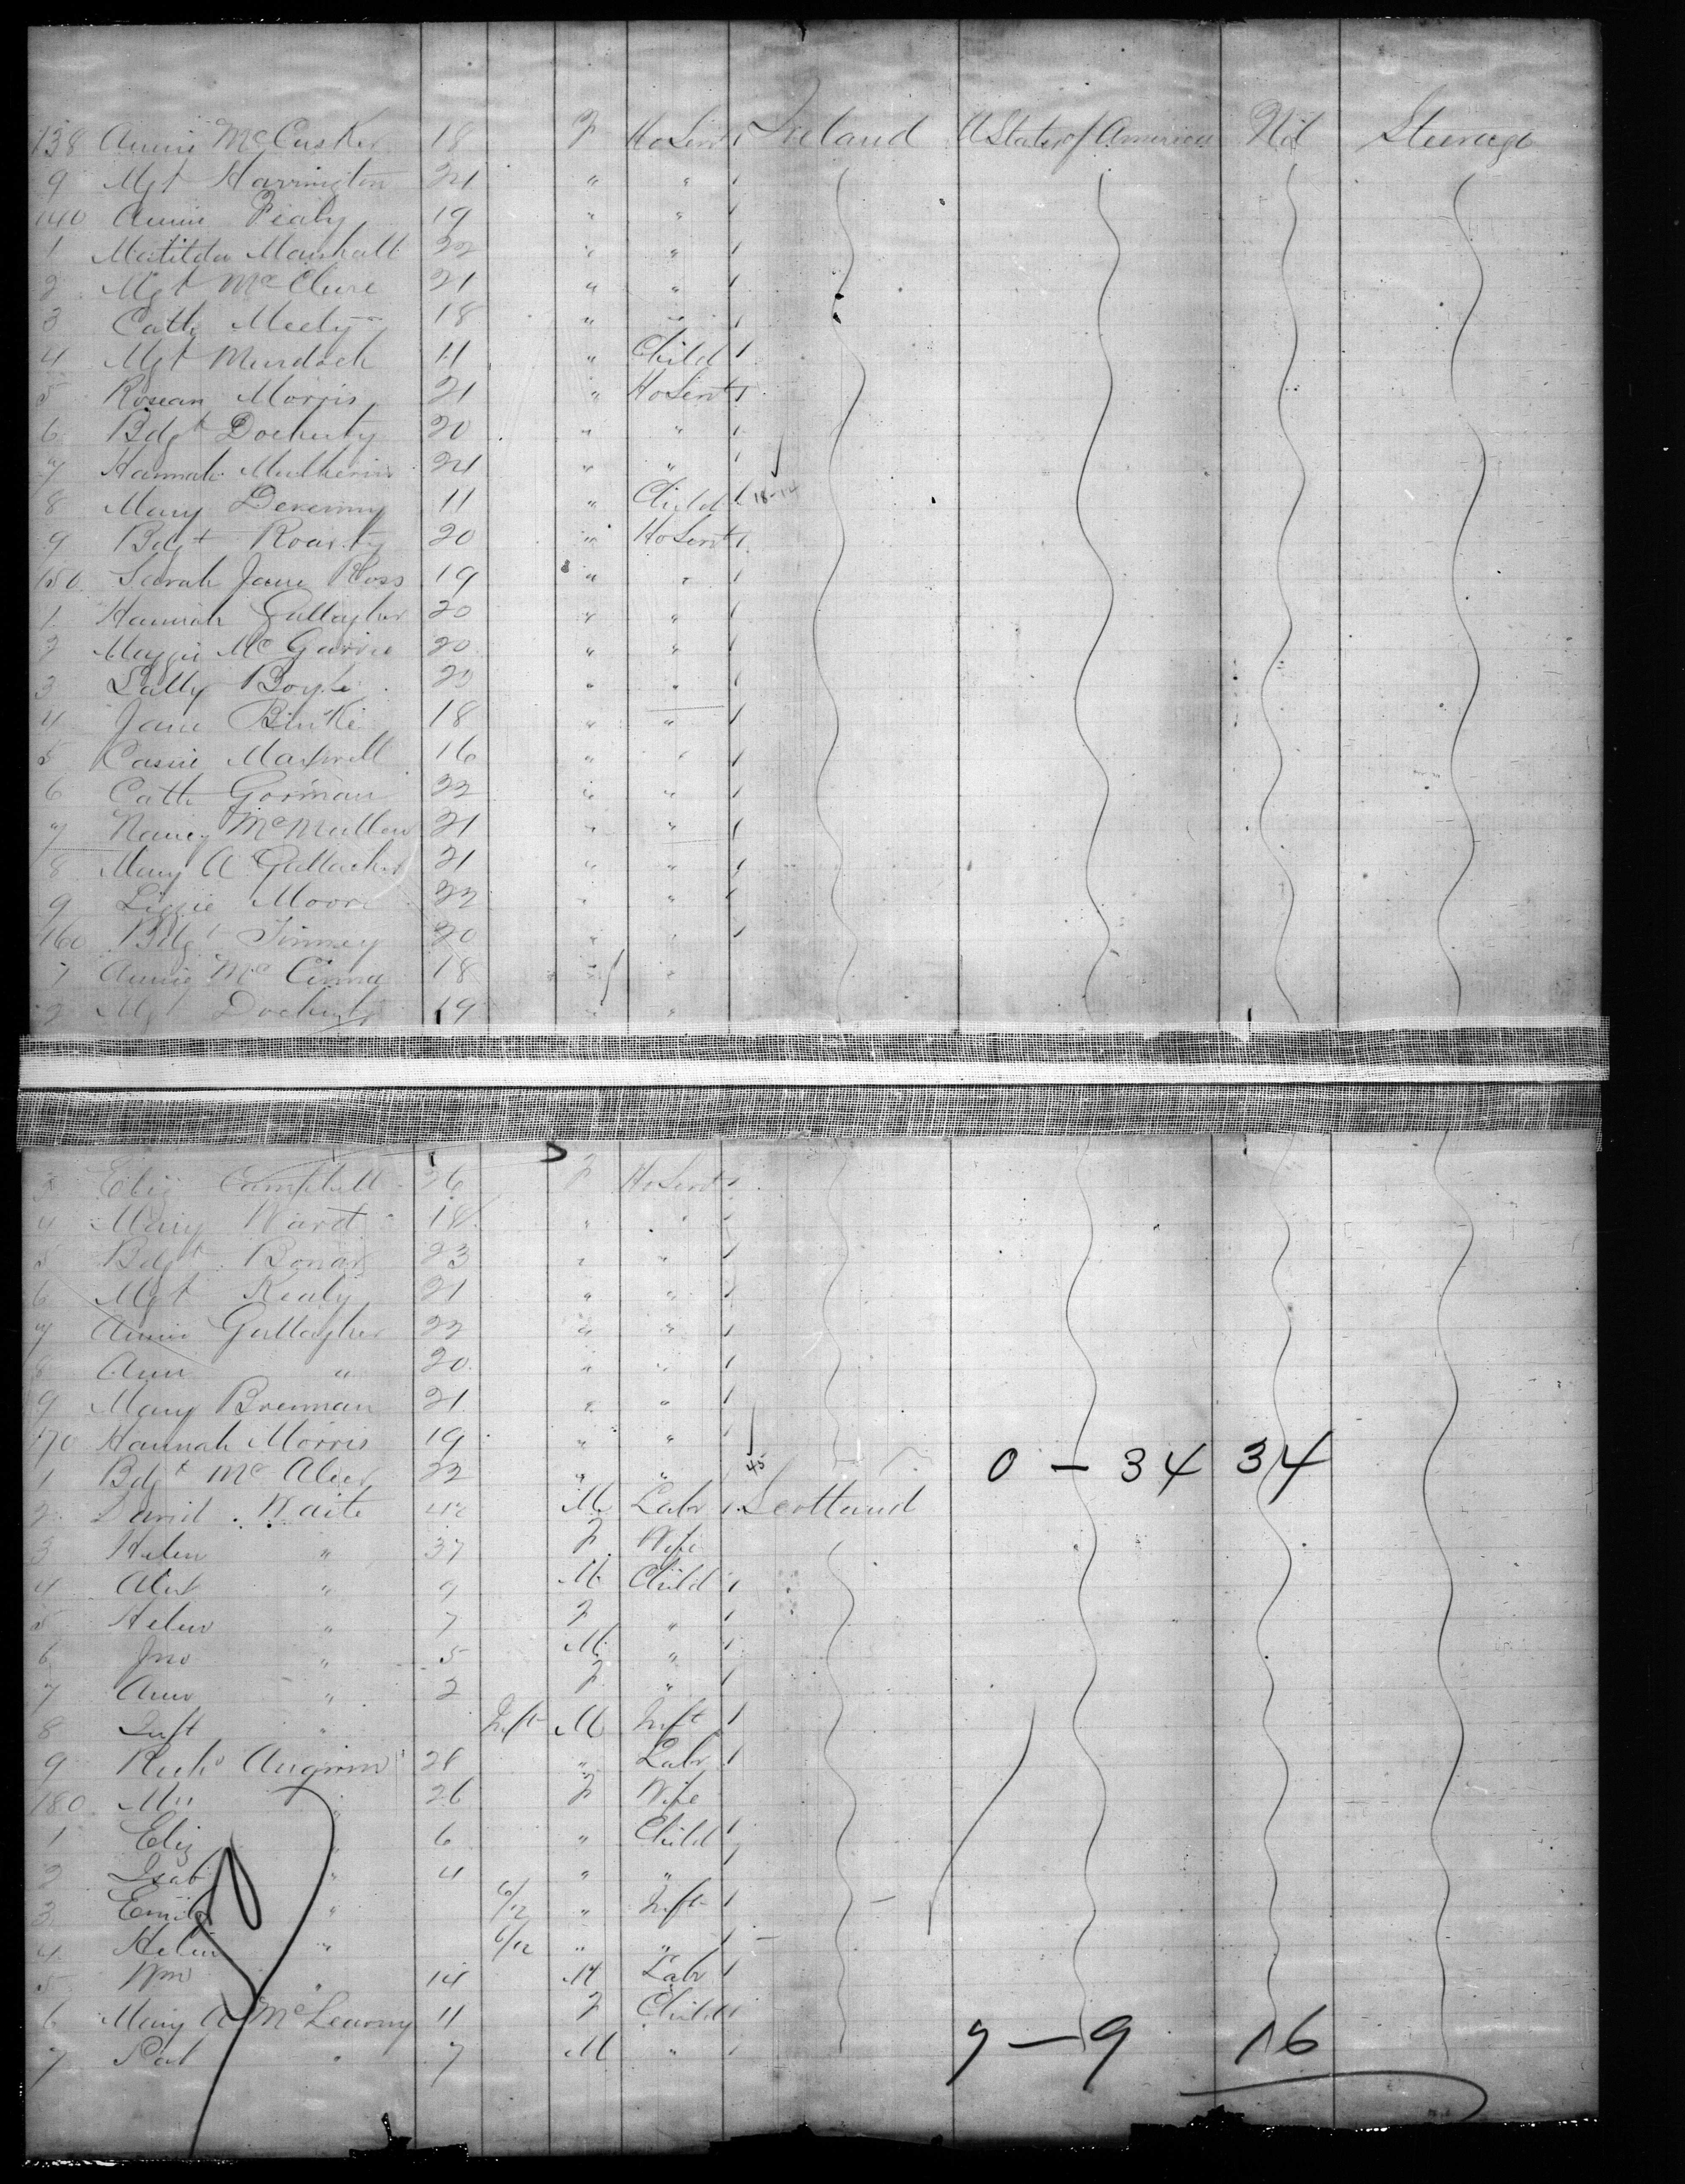 138 Annie McCusker 18 F HoServt 1 Ireland U States of America Nil Steerage
9 Mgt Harrington 21 " " 1
140 Annie Fealy 19 " " 1
1 Matilda Marshall 22 " " 1
2 Mgt McClure 21 " " 1
3 Cath Meely 18 " " 1
4 Mgt Murdoch 11 " Child 1
5 Rosean Morris 21 " HoServt 1
6 Bdgt Docherty 20 " " 1
7 Hannah Mulherin 21 " " 1
8 Mary Devenny 11 " Child 1
9 Bdgt Roarty 20 " HoServt 1
150 Sarah Jane Ross 19 " " 1
1 Hannah Gallagher 20 " " 1
2 Maggie McGarvie 20 " " 1
3 Sally Boyle 23 " " 1
4 Jane 18 " " 1
5 Cassie Maxwell 16 " " 1
6 Cath Gorman 22 " " 1
7 Nancy McMullen 21 " " 1
8 Mary A Gallacher 21 " " 1
9 Lizzie Moore 22 " " 1
160 Bdgt Finney 20 " " 1
1 Annie Mc 18 " "
2 Mgt Docherty 19 " "
3 Eliz Campbell 26 F HoServt 1
4 Mary Ward 18 " " 1
5 Bdgt Bonar 23 " " 1
6 Mgt Kealy 21 " " 1
7 Annie Gallagher 22 " " 1
8 Ann " 20 " " 1
9 Mary Brennan 21 " " 1
170 Hannah Morris 19 " " 1
1 Bdgt McAleer 22 " " 45 0 — 34 34
2 David Waite M Labr 1 Scotland
3 Helen " 37 F Wife
4 Alex " 9 M Child 1
5 Helen " 7 F " 1
6 Jno " 5 M " 1
7 Ann " 2 F " 1
8 Inft " Inft M Inft 1
9 Richd 28 " Labr 1
180 Mrs " 26 F Wife
1 Eliz " 6 " Child 1
2 Isab " 4 " " 1
3 Emily " 6/12 " Inft 1
4 Helen " 6/12 " " 1
5 Wm " 14 M Labr 1
6 Mary A McLearny 11 F Child 1
7 Pat " 7 M " 1 7 — 9 16